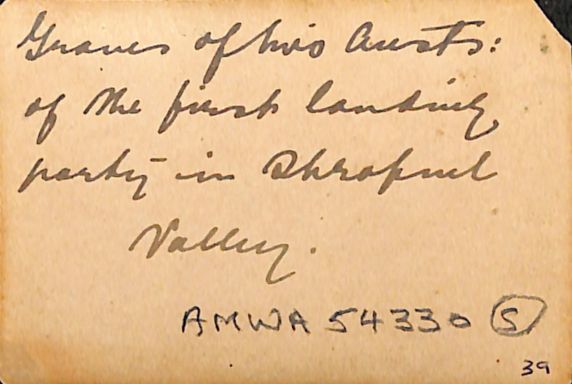 Graves of two Austs:
of the first landing
party in Shrapnel
Valley.
AMWA 54330 S
39